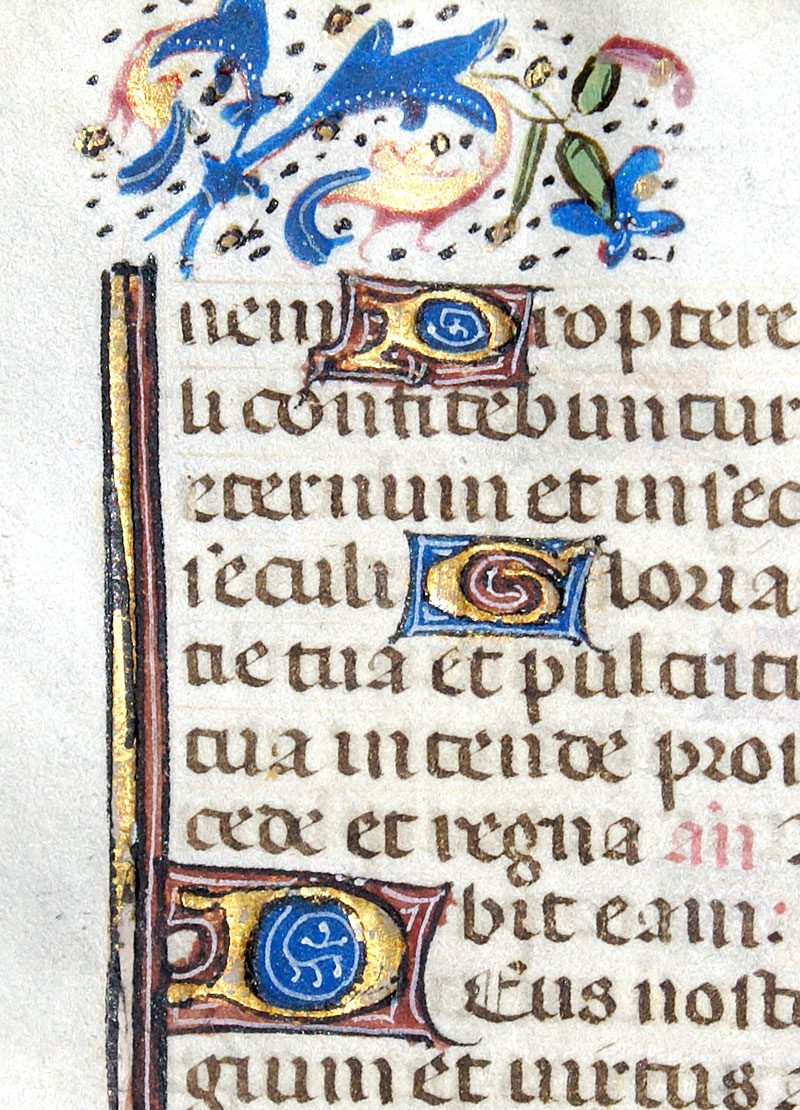 nem Proptere
li confitebuntur
eternum et in sec
seculi Gloria
tie tua et pulcrit
tua intende pros
cede et regna an
bit eam:
DEus nost
gium et uirtus